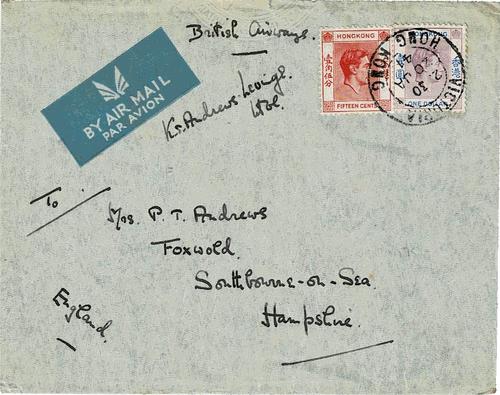 British Airways.
HONGKONG
壹角伍分
FIFTEEN CENTS
HONGKONG
壹圓
香港
ONE DOLLAR
VICTORIA
HONG KONG
BY AIR MAIL
PAR AVION
K. Andrews
To
Mrs. P. T. Andrews
Foxwold.
Southbourne-on-Sea.
Hampshire.
England.